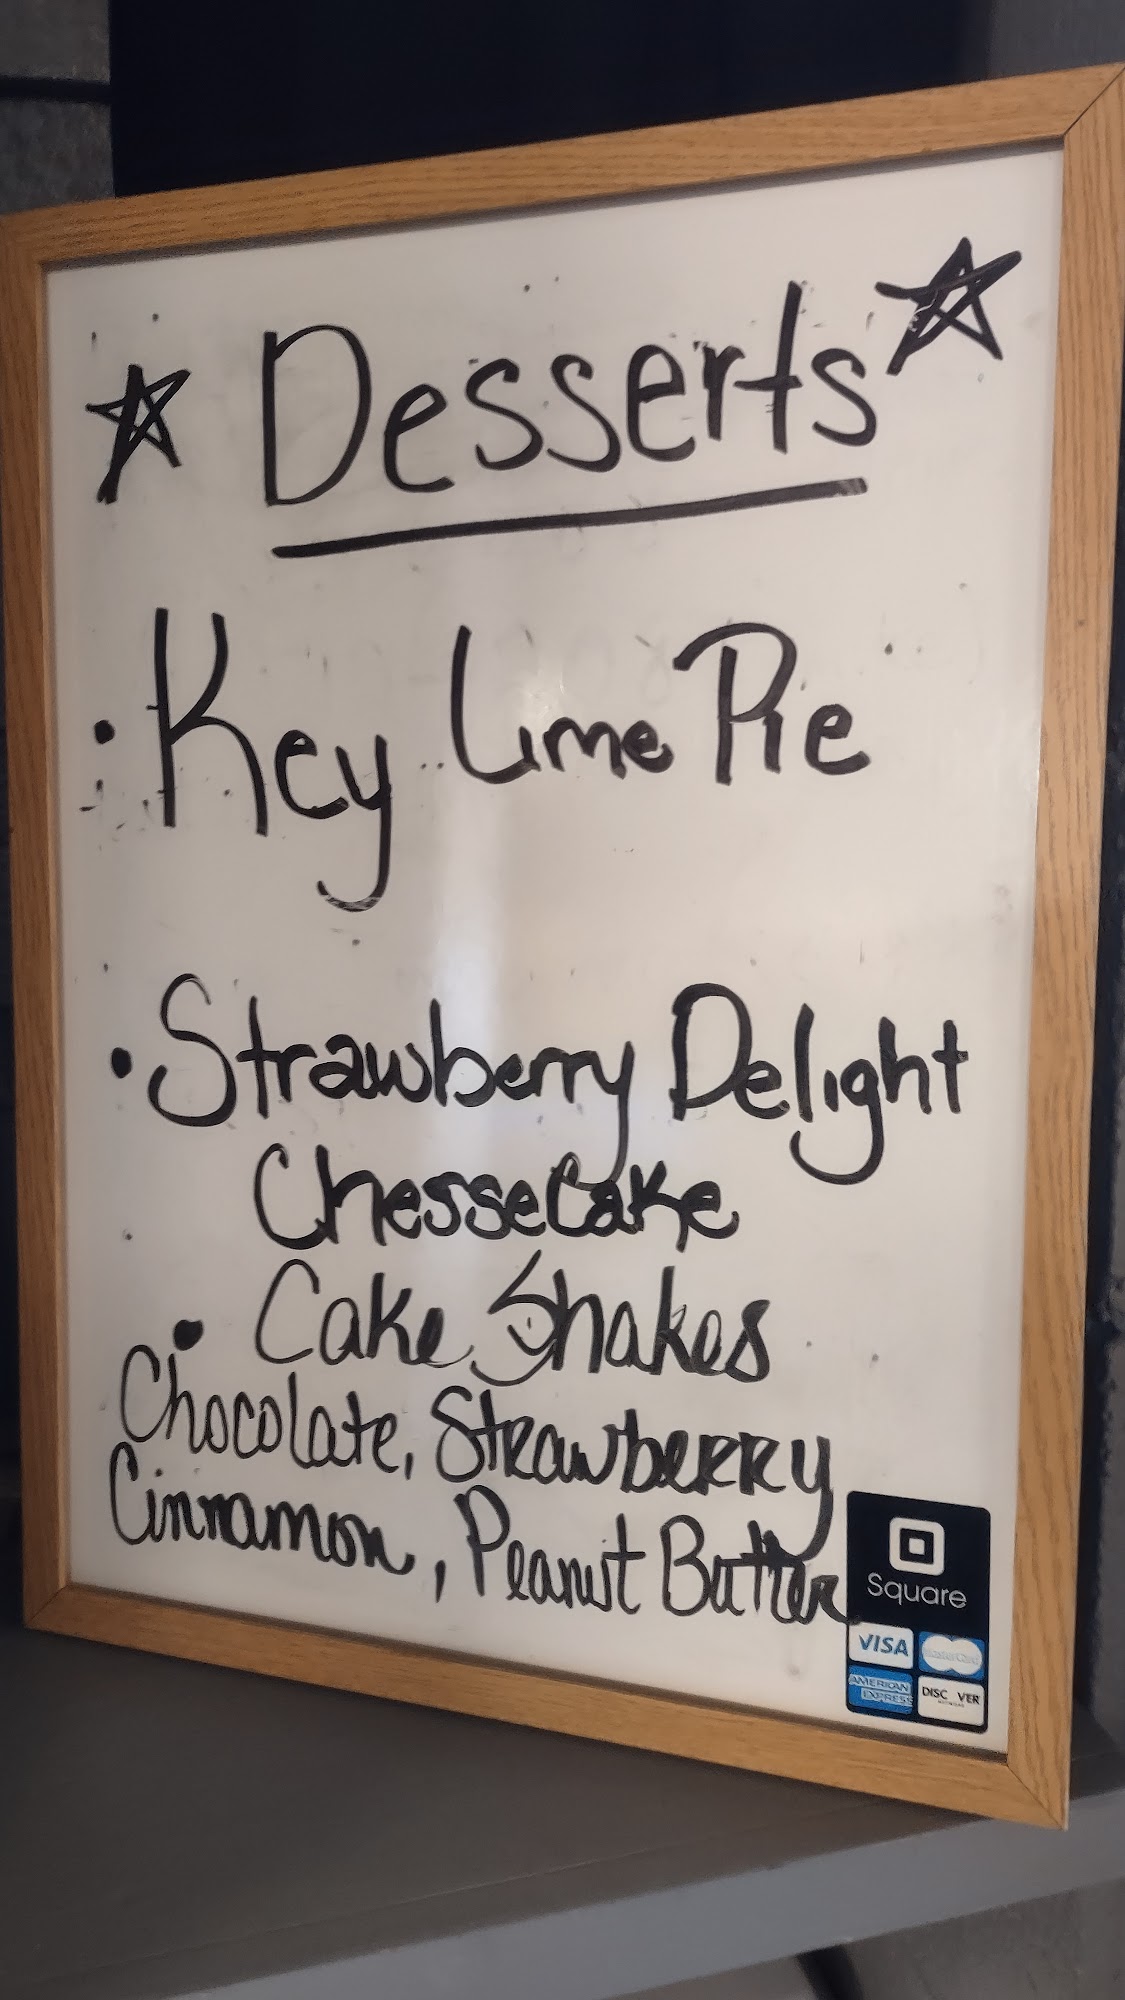 ☆ Desserts ☆
• Key Lime Pie
• Strawberry Delight
Chessecake
• Cake Shakes
Chocolate, Strawberry
Cinnamon, Peanut Butter
Square
VISA MasterCard
AMERICAN EXPRESS DISC VER
NETWORK